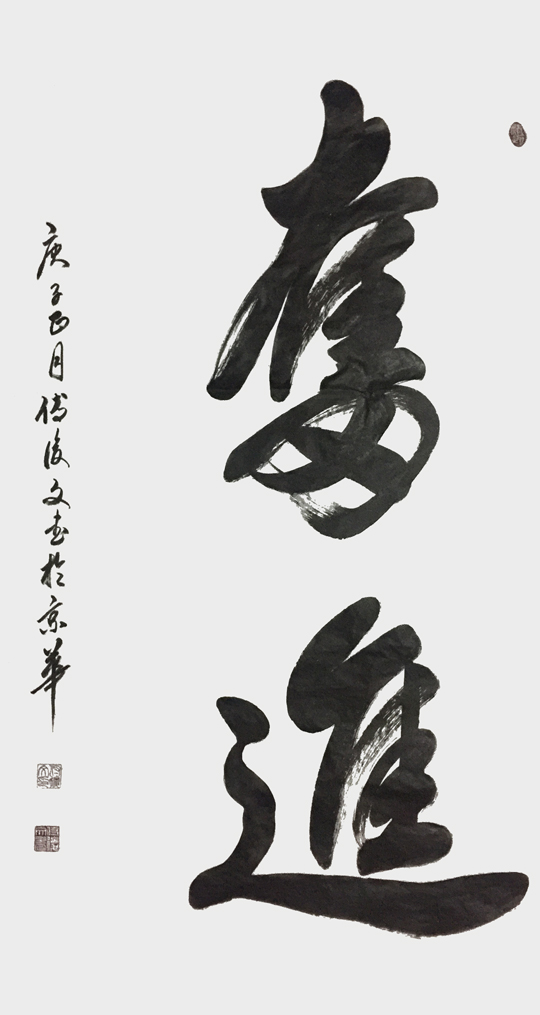 奮進
庚子正月傅後文書於京華